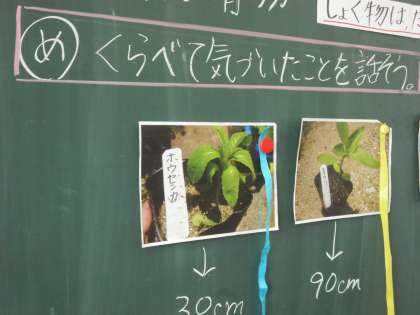 しょく物は、
め くらべて気づいたことを話そう。
ホウセンカ
30cm
90cm